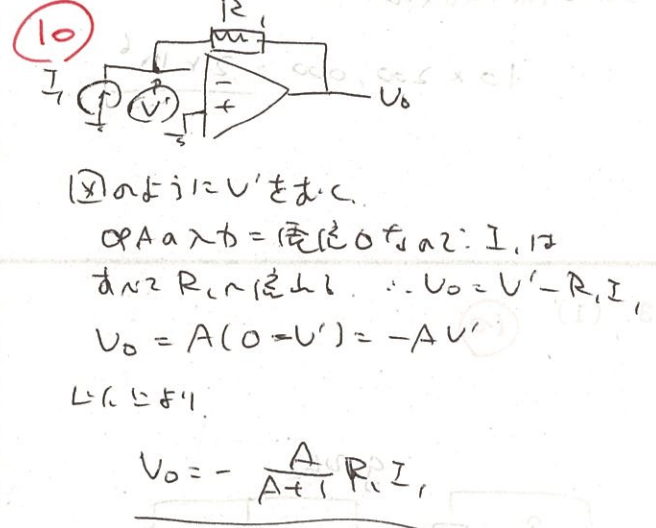 10
R₁
I₁
V'
-
+
V₀
図のようにV'をおく。
OPAの入力=電流0なので: I₁は
すべてR₁へ流れる. ∴V₀=V'-R₁I₁
V₀=A(0-V')=-AV'
以上により
V₀=- A/(A+1) R₁I₁